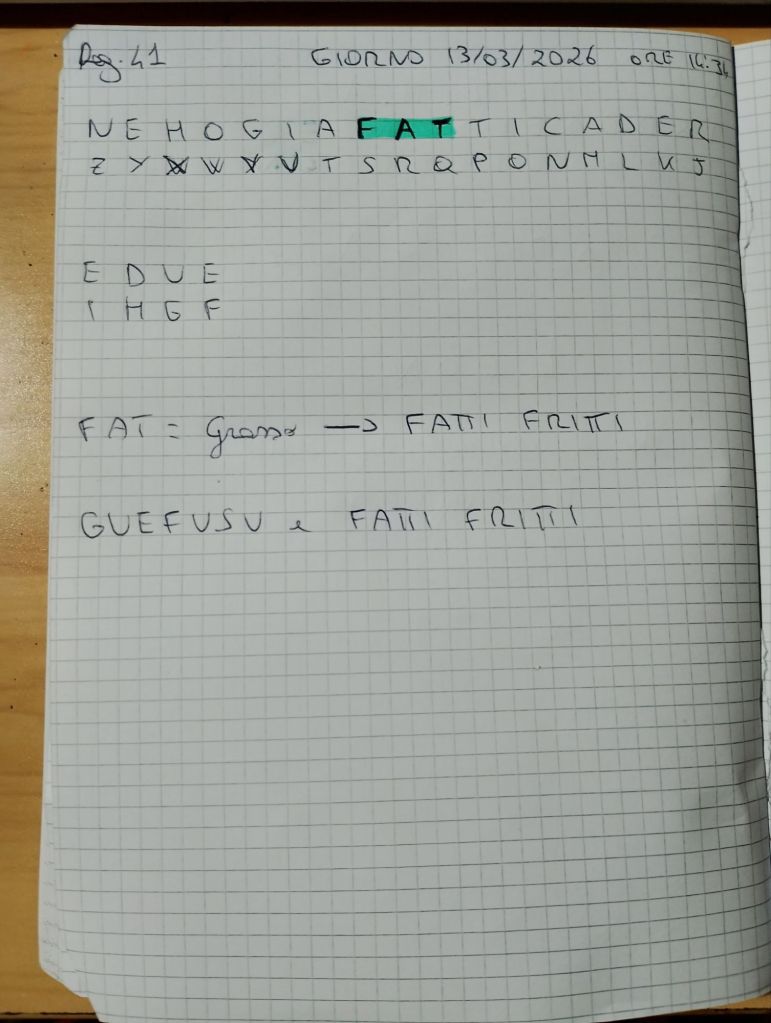 Pag. 41 GIORNO 13/03/2026 ORE 14:34
N E H O G I A F A T T I C A D E R
Z Y X W V U T S R Q P O N M L K J
E D U E
I H G F
FAT = Grasso → FATTI FRITTI
GUEFUSU e FATTI FRITTI